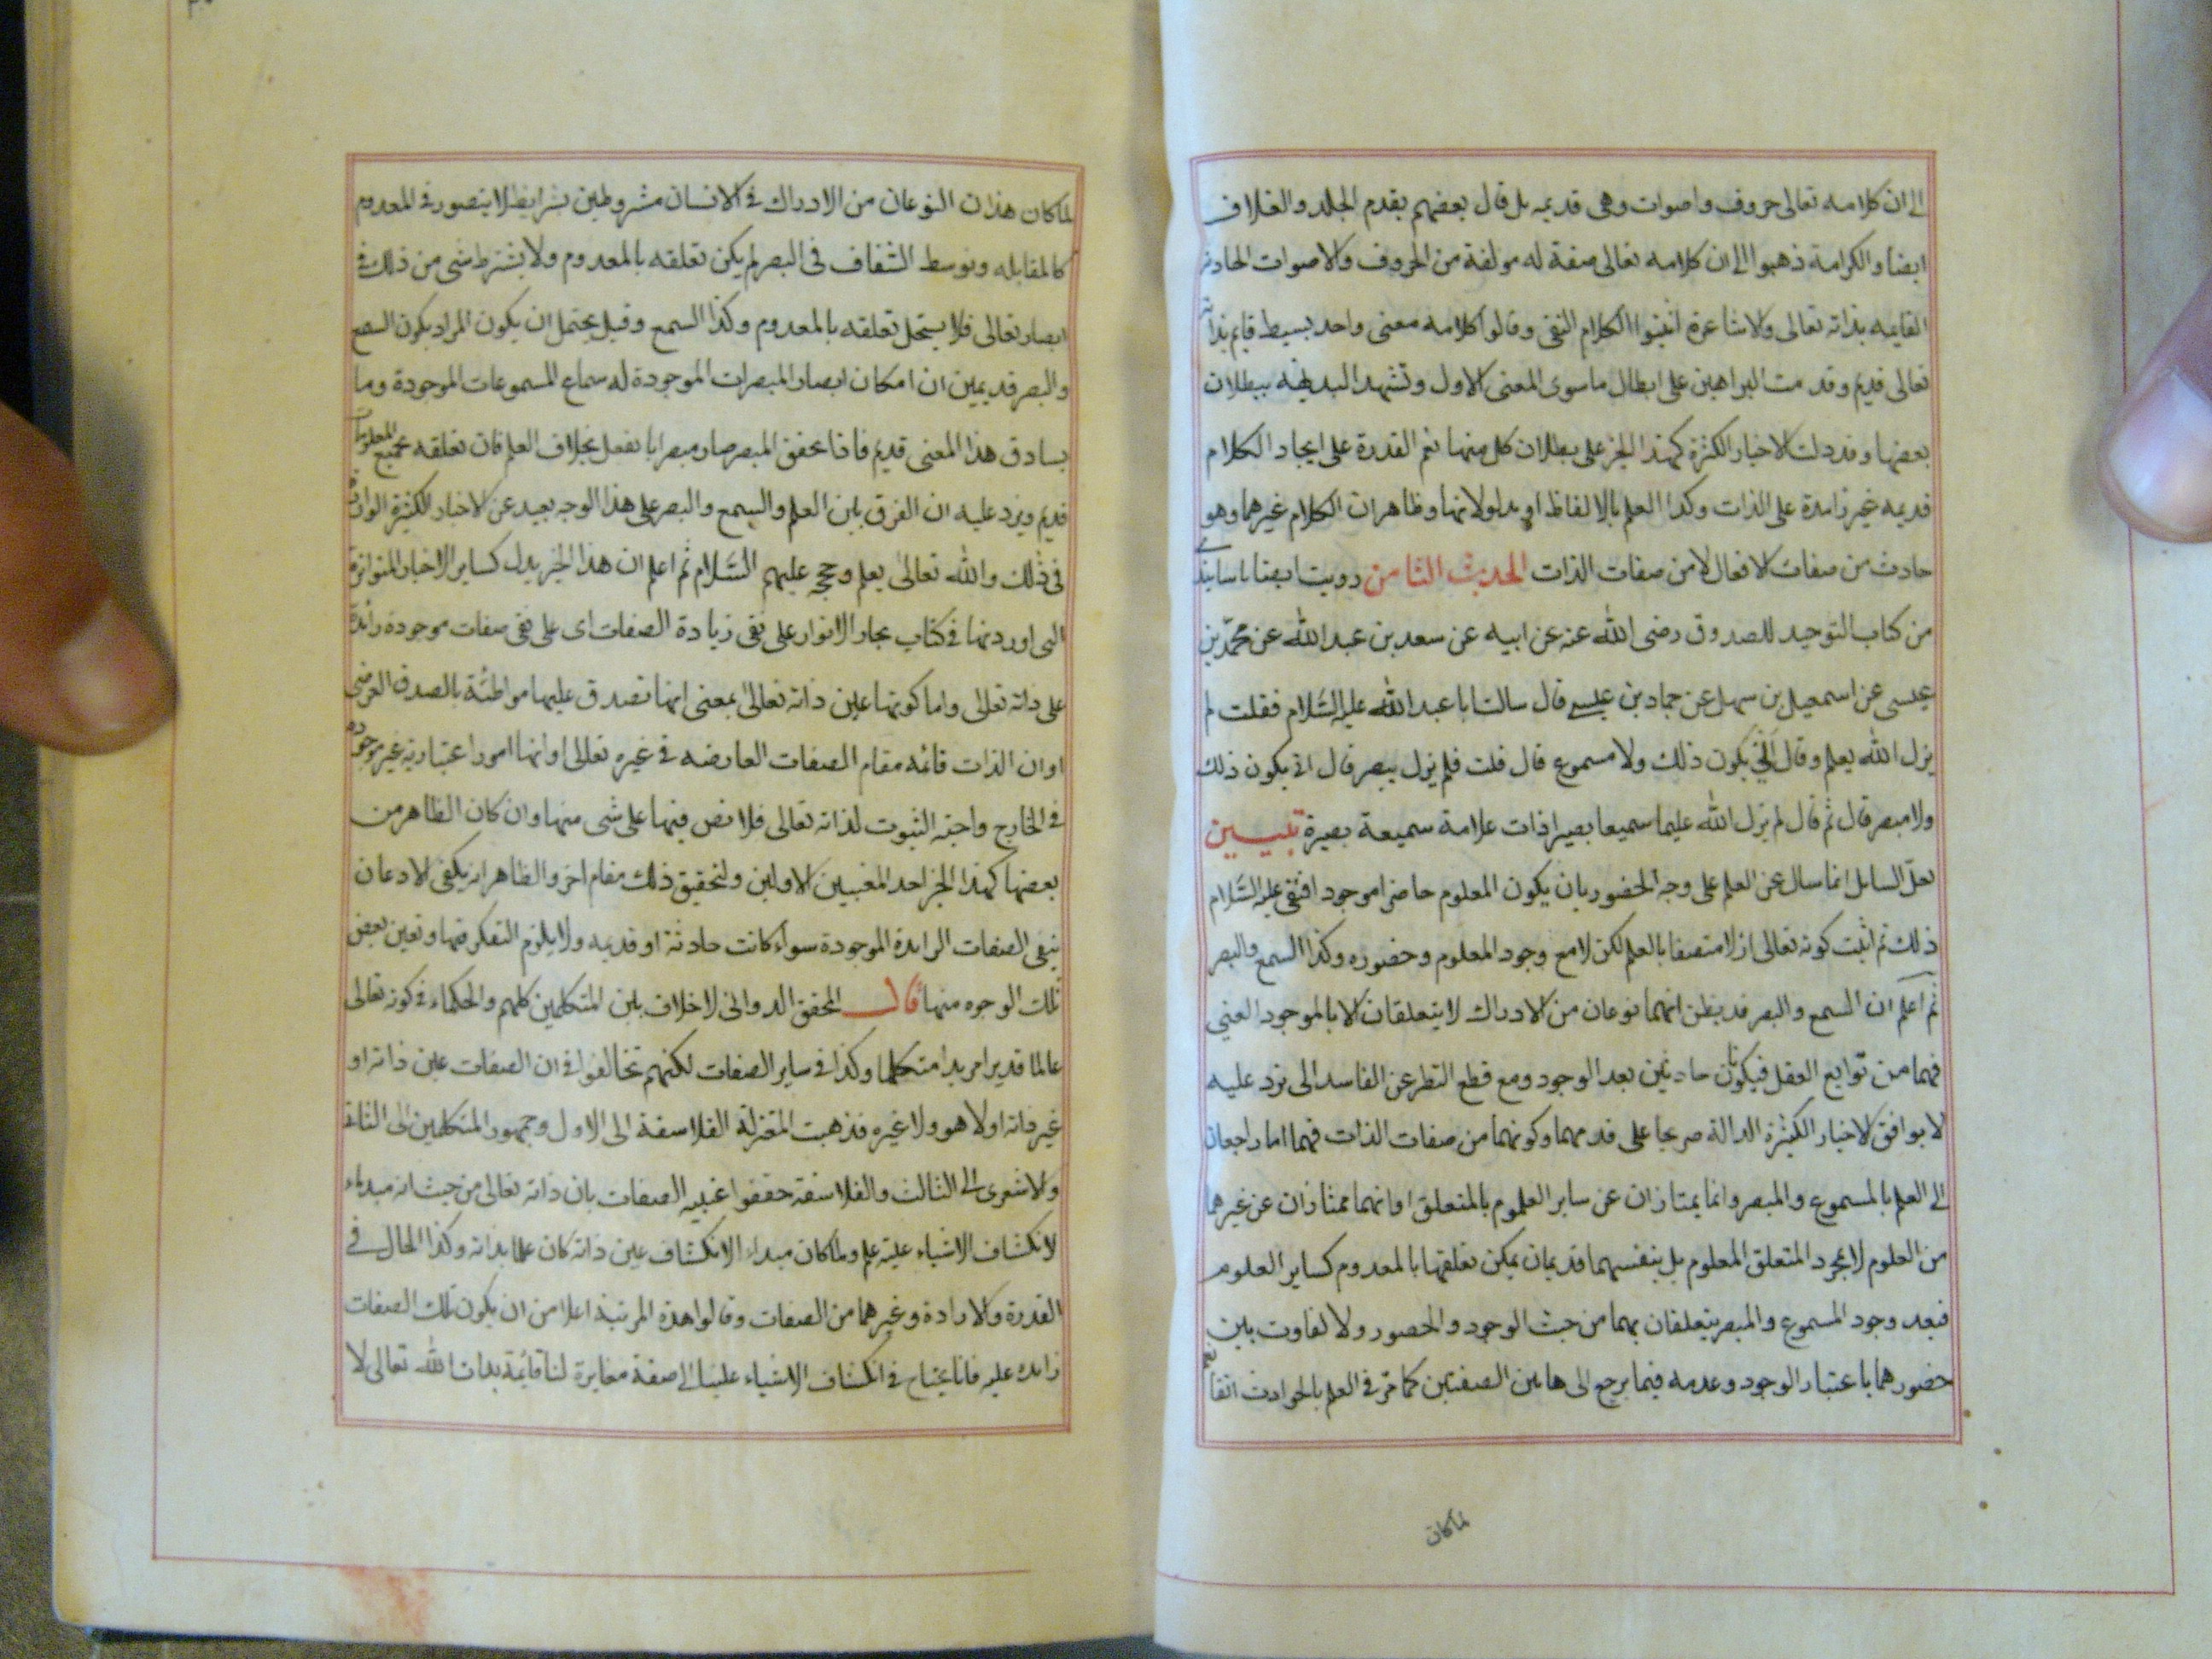 الى ان كلامه تعالى حروف واصوات وهى قديمه بل قال بعضهم بقدم الجلد والغلاف
ايضا والكرامة ذهبوا الى ان كلامه تعالى صفة له مولفة من الحروف والاصوات الحادثه
القايمه بذاته تعالى والاشاعرة اثبتوا الكلام النفى وقالوا كلامه معنى واحد بسيط قايم بذاته
تعالى قديم وقد مت البراهين على ابطال ما سوى المعنى الاول وتشهد البديهه ببطلان
بعضها وقد دلت الاخبار الكثرة كهذا الخبر على بطلان كل منها ثم القدرة على ايجاد الكلام
قديمه غير زايدة على الذات وكذا العلم بالالفاظ او بمدلولاتها وظاهر ان الكلام غيرهما وهو
حادث من صفات الافعال لا من صفات الذات الحديث الثامن رويت ايضا باسانيدى
من كتاب التوحيد للصدوق رضى الله عنه عن ابيه عن سعد بن عبد الله عن محمد بن
عيسى عن اسمعيل بن سهل عن حماد بن عيسى قال سالت ابا عبد الله عليه السلام فقلت لم
يزل الله يعلم وقال انّى يكون ذلك ولا مسموع قال قلت فلم يزل يبصر قال انى يكون ذلك
ولا مبصر قال ثم قال لم يزل الله عليما سميعا بصيرا ذات علامة سميعة بصيرة تبيين
لعلّ السايل انما سال عن العلم على وجه الحضور بان يكون المعلوم حاضرا موجود افنفى عليه السّلام
ذلك ثم اثبت كونه تعالى ازلا متصفا بالعلم لكن لا مع وجود المعلوم وحضوره وكذا السمع والبصر
ثم اعلم ان السمع والبصر قد يظن انهما نوعان من الادراك لا يتعلقان الا بالموجود العينى
فهما من توابع الفعل فيكونان حادثين بعد الوجود ومع قطع النظر عن المفاسد التى ترد عليه
لا يوافق الاخبار الكثيرة الدالة صريحا على قدمهما وكونهما من صفات الذات فهما اما راجعان
الى العلم بالمسموع والمبصر وانما يمتازان عن ساير العلوم بالمتعلق او انهما ممتازان عن غيرهما
من العلوم لا بمجرد المتعلق المعلوم بل بنفسهما قديمان يمكن تعلقهما بالمعدوم كساير العلوم
فبعد وجود المسموع والمبصر يتعلقان بهما من حيث الوجود والحضور ولا تفاوت بين
حضورهما باعتبار الوجود وعدمه فيما يرجع الى هاتين الصفتين كما مرّ فى العلم بالحوادث انفا
لما كان
لما كان هذان النوعان من الادراك فى الانسان مشروطين بشرايط لا يتصور فى المعدوم
كالمقابله وتوسط الشفاف فى البصر لم يكن تعلقه بالمعدوم ولا يشترط شى من ذلك فى
ابصاره تعالى فلا يستحل تعلقه بالمعدوم وكذا السمع وقيل يحتمل ان يكون المراد بكون السمع
والبصر قديمين ان امكان ابصار المبصرات الموجودة له سماع المسموعات الموجودة وما
يساوق هذا المعنى قديم فاذا تحقق المبصر صار مبصرا بالفعل بخلاف العلم فان تعلقه بجميع المعلومات
قديم ويرد عليه ان الفرق بين العلم والسمع والبصر على هذا الوجه بعيد عن الاخبار الكثيرة الواردة
فى ذلك والله تعالى يعلم وحججه عليهم السّلام ثم اعلم ان هذا الخبر يدل كساير الاخبار المتواترة
التى اوردتها فى كتاب بحار الانوار على نفى زيادة الصفات اى على نفى صفات موجودة زائدة
على ذاته تعالى واما كونها عين ذاته تعالى بمعنى انها تصدق عليها مواطئة بالصدق العرضى
او ان الذات قائمه مقام الصفات العارضه فى غيره تعالى او انها امور اعتباريه غير موجوده
فى الخارج واجبه الثبوت لذاته تعالى فلا نص فيها على شى منها وان كان الظاهر من
بعضها كهذا الخبر احد المعنيين الاولين ولتحقيق ذلك مقام اخر والظاهر انه يكفى الاذعان
بنفى الصفات الزايدة الموجودة سواء كانت حادثة او قديمه ولا يلزم التفكر فيها وتعين بعض
تلك الوجوه منها قال المحقق الدوانى لا خلاف بين المتكلمين كلهم والحكماء فى كونه تعالى
عالما قديرا مريدا متكلما وكذا فى ساير الصفات لكنهم تخالفوا فى ان الصفات عين ذاته او
غير ذاته او لا هو ولا غيره فذهبت المعتزلة الفلاسفة الى الاول وجمهور المتكلمين الى الثانى
والاشعرى الى الثالث والفلاسفة حققوا عينيه الصفات بان ذاته تعالى من حيث انه مبداء
لانكشاف الاشياء عليه علم ولما كان مبداء الانكشاف عين ذاته كان عالما بذاته وكذا الحال فى
القدرة والارادة وغيرهما من الصفات وقالوا هذه المرتبة اعلا من ان يكون تلك الصفات
زايده عليه فانا نحتاج فى انكشاف الاشياء علينا الى صفة مغايرة لنا قايمة بنا والله تعالى لا